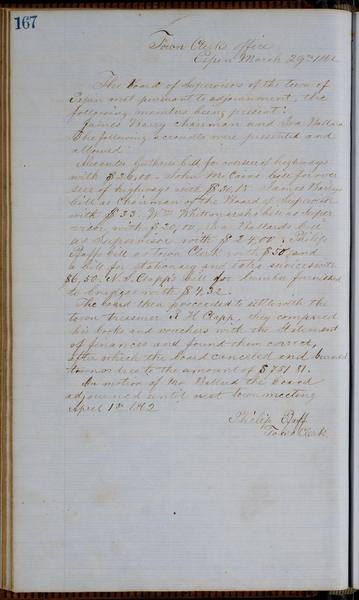 167
Town Clerks office
Espen March 29th 1862
The Board of Supervisors of the town of
Espen met pursuant to adjournment, the
following members being present:
James Harvy chairman and Ira Ballard
The following accounts were presented and
allowed:
Guthries bill for overseer of highways
with $26,00. John McCains bill for over
seer of highways with $20,18. James Harveys
bill as Chairman of the Board of Supervisors
with $33. Wm Whitmarshs bill as Super
visor with $20,00, Ira Ballards bill
as Supervisor with $24.00. Philip
Paffs bill as town Clerk with $50, and
a bill for stationery and extra services with
$6,50. A. H. Clapps bill for lumber furnished
to bridges with $4,32.
The board then proceeded to settle with the
town treasurer A H Clapp, they compared
his books and vouchers with the Statement
of finances and found them correct,
after which the board canceled and burned
town orders to the amount of $751 81.
On motion of Mr Ballard the board
adjourned until next town meeting
April 1st 1862
Philip Paff
Town Clerk.